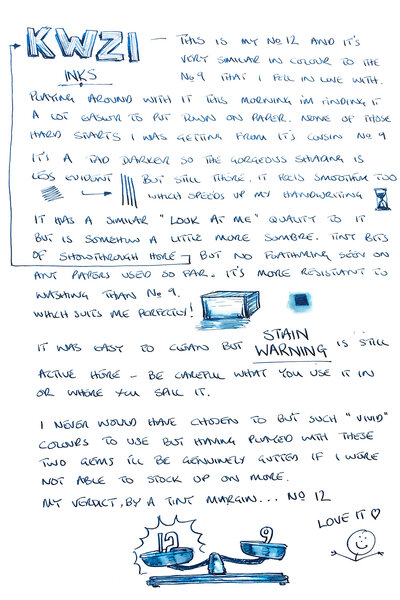 KWZI INKS — THIS IS MY No 12 AND IT'S
VERY SIMILAR IN COLOUR TO THE
No 9 THAT I FELL IN LOVE WITH.
PLAYING AROUND WITH IT THIS MORNING I'M FINDING IT
A LOT EASIER TO PUT DOWN ON PAPER. NONE OF THOSE
HARD STARTS I WAS GETTING FROM IT'S COUSIN No 9
IT'S A TAD DARKER SO THE GORGEOUS SHADING IS
LESS EVIDENT BUT STILL THERE. IT FEELS SMOOTHER TOO
WHICH SPEEDS UP MY HANDWRITING
IT HAS A SIMILAR "LOOK AT ME" QUALITY TO IT
BUT IS SOMEHOW A LITTLE MORE SOMBRE. TINY BITS
OF SHOWTHROUGH HERE BUT NO FEATHERING SEEN ON
ANY PAPERS USED SO FAR. IT'S MORE RESISTANT TO
WASHING THAN No 9.
WHICH SUITS ME PERFECTLY!
IT WAS EASY TO CLEAN BUT STAIN WARNING IS STILL
ACTIVE HERE - BE CAREFUL WHAT YOU USE IT IN
OR WHERE YOU SPILL IT.
I NEVER WOULD HAVE CHOSEN TO BUY SUCH "VIVID"
COLOURS TO USE BUT HAVING PLAYED WITH THESE
TWO GEMS I'LL BE GENUINELY GUTTED IF I WERE
NOT ABLE TO STOCK UP ON MORE.
MY VERDICT, BY A TINY MARGIN... No 12
12 9
LOVE IT ♡